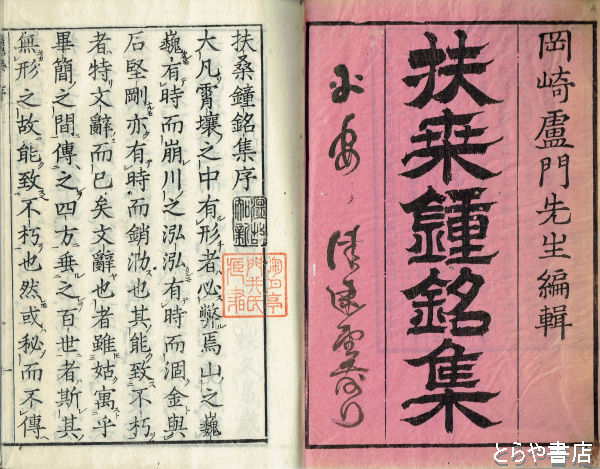 岡崎廬門先生編輯
扶桒鐘銘集
扶桑鐘銘集序
大凡霄壤之中有形者必弊焉山之巍
巍有時而崩川之泓泓有時而涸金與
石堅剛亦有時而銷泐也其能致不朽
者特文辭而已矣文辭也者雖姑寓乎
畢簡之間傳之四方垂之百世者斯其
無形之故能致不朽也然或秘而不傳
とらや書店